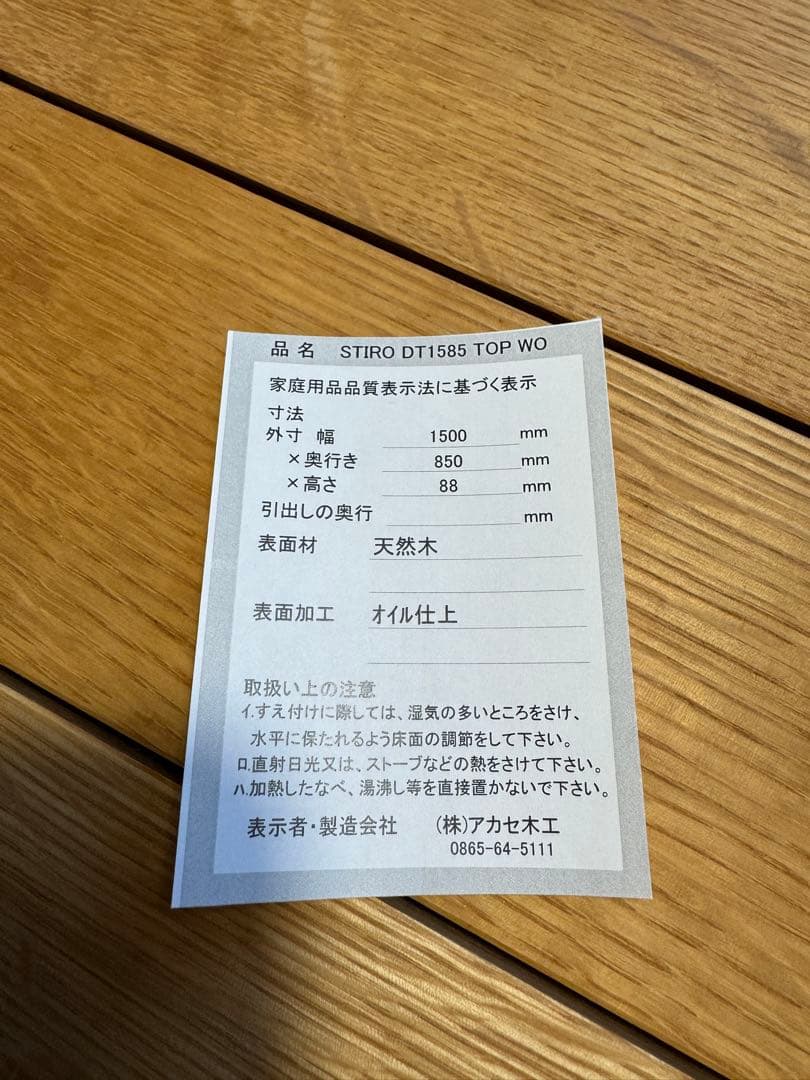 品 名 STIRO DT1585 TOP WO
家庭用品品質表示法に基づく表示
寸法
外寸 幅 1500 mm
×奥行き 850 mm
×高さ 88 mm
引出しの奥行 mm
表面材 天然木
表面加工 オイル仕上
取扱い上の注意
イ.すえ付けに際しては、湿気の多いところをさけ、
水平に保たれるよう床面の調節をして下さい。
ロ.直射日光又は、ストーブなどの熱をさけて下さい。
ハ.加熱したなべ、湯沸し等を直接置かないで下さい。
表示者・製造会社 (株)アカセ木工
0865-64-5111